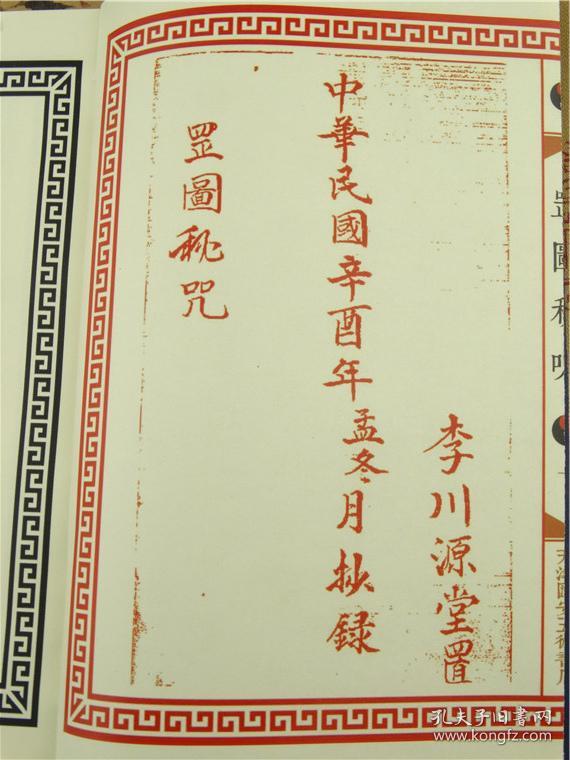 李川源堂置
中華民國辛酉年孟冬月抄録
罡圖秘咒
罡圖秘咒
孔夫子旧書网
www.kongfz.com